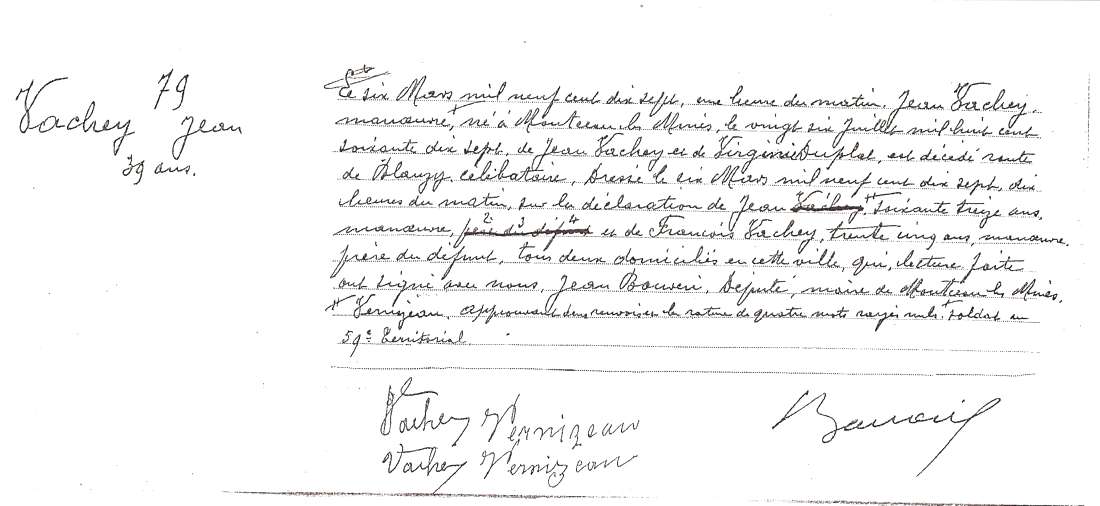 79
Vachey Jean
39 ans.
Le six Mars mil neuf cent dix sept, une heure du matin, Jean Vachey,
manœuvre, + né à Montceau les Mines, le vingt six Juillet mil huit cent
soixante dix sept, de Jean Vachey et de Virginie Duplat, est décédé route
de Blanzy. célibataire, Dressé le six Mars mil neuf cent dix sept, dix
heures du matin, sur la déclaration de Jean Vachey, ++ soixante treize ans,
manœuvre, père du défunt et de François Vachey, trente cinq ans, manœuvre,
frère du défunt, tous deux domiciliés en cette ville, qui, lecture faite
ont signé avec nous, Jean Bouveri, Député, maire de Montceau les Mines.
++ Vernizeau, approuvant deux renvois et la rature de quatre mots rayés nuls. + soldat au
59e Territorial
Vachey Vernizeau
Vachey Vernizeau
Bouveri